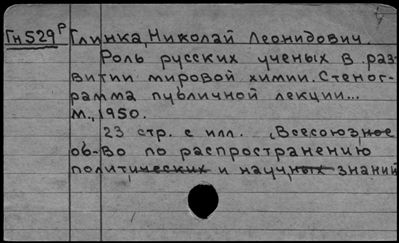 Гн529р Глинка, Николай Леонидович.
Роль русских ученых в раз-
витии мировой химии. Стеног-
рамма публичной лекции...
М., 1950.
23 стр. с илл. (Всесоюзное
об-во по распространению
политических и научных знаний